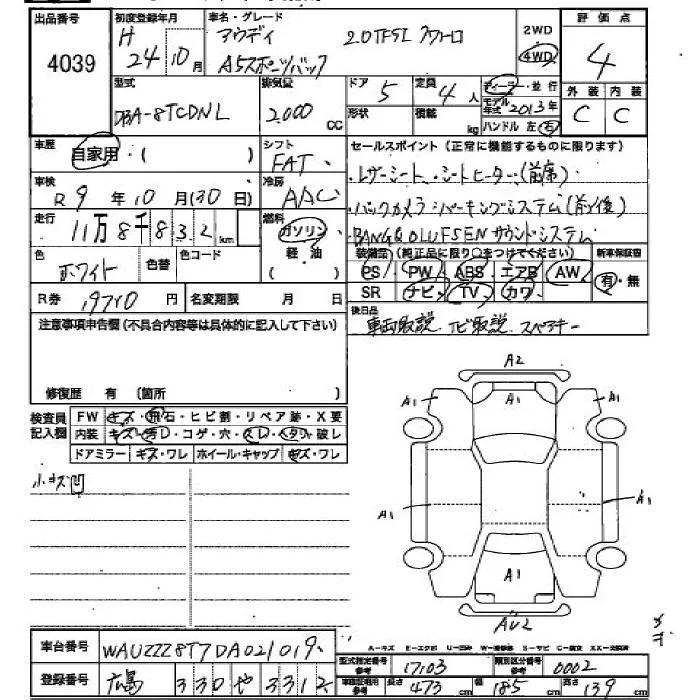 出品番号 初度登録年月 車名・グレード 2WD 評価点
4039 H 24年10月 アウディ 2.0TFSI クワトロ 4WD 4
A5スポーツバック
型式 排気量 ドア 5 定員 4人 ディーラー・並行 外装 内装
DBA-8TCDNL 2,000cc 形状 積載 kg モデル年式 2013年 C C
ハンドル 左 右
車歴 自家用・( ) シフト FAT セールスポイント(正常に機能するものに限ります)
車検 R 9年10月(30日) 冷房 AAC レザーシート、シートヒーター(前席)
走行 11万8千832km 燃料 ガソリン・軽油() バックカメラ・パーキングシステム(前後)
BANG&OLUFSENサウンドシステム
色 ホワイト 色替 色コード 装備品(純正品に限り○をつけてください) 新車保証書
PS PW ABS エアB AW 有・無
R券 19710円 名変期限 月 日 SR ナビ TV カワ
注意事項申告欄(不具合内容等は具体的に記入して下さい) 後日品
車両取説、ナビ取説、スペアキー
修復歴 有 (箇所 )
検査員記入欄 FW キズ・飛石・ヒビ割・リペア跡・X要
内装 キズ・汚れ・コゲ・穴・スレ・ヘタリ・破レ
ドアミラー キズ・ワレ ホイール・キャップ キズ・ワレ
小キズ凹
A2
A1 A1 A1
A1 A1
A1
AU2
A=キズ E=エクボ U=凹み W=補修跡 S=サビ C=腐食 XX=交換済
車台番号 WAUZZZ8T7DA021019
型式指定番号 参考 17103 類別区分番号 参考 0002
登録番号 広島 330 や 3312
車体証明用 参考 長さ 473cm 幅 185cm 高さ 139cm